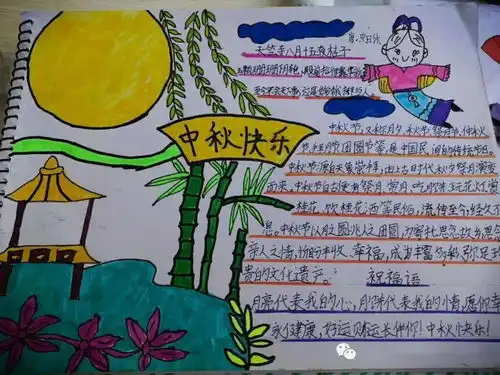 中秋快乐
天竺寺八月十五夜桂子
中秋节,又称月夕、秋节、仲秋
节、拜月节、团圆节等,是中国民间的传统节日。
中秋节源自天象崇拜,由上古时代秋夕祭月演变
而来。中秋节自古便有祭月、赏月、吃月饼、玩花灯、赏
桂花、饮桂花酒等民俗,流传至今,经久不
息。中秋节以月之圆兆人之团圆,为寄托思念故乡,思念
亲人之情,祈盼丰收、幸福,成为丰富多彩、弥足珍
贵的文化遗产。
祝福语
月亮代表我的心,月饼代表我的情,愿你幸
永健康,好运财运长伴你!中秋快乐!